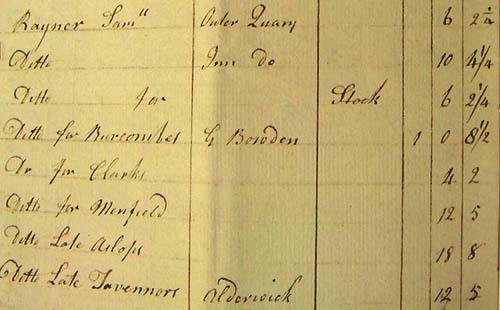 Rayner Sam<sup>ll</sup> Outer Quary 6 2 1/2
Ditto Inn do 10 4 1/4
Ditto for Stock 6 2 1/4
Ditto for Burcombes G Bowden 1 0 8 1/2
Do for Clarks 4 2
Ditto for Menfield 12 5
Ditto Late Aslops 18 8
Ditto Late Tavennors Alderwick 12 5